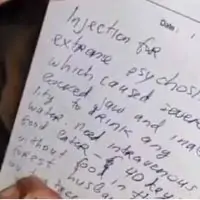 Date: 1
Injection for
extreme psychosi
which caused sever
locked jaw and ina
lity to drink any
water. need intravenous
food later. $40 key
without food in th
husba